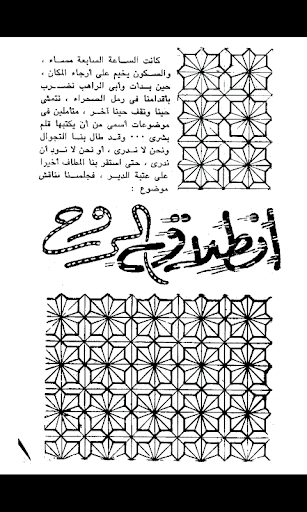 كانت الساعة السابعة مساء ،
والسكون يخيم على أرجاء المكان ،
حين بدأت وأبى الراهب نضرب
بأقدامنا فى رمل الصحراء ، نتمشى
حينا ونقف حينا آخر ، متأملين فى
موضوعات أسمى من أن يكتبها قلم
بشرى ... وقد طال بنا التجوال
ونحن لا ندرى ، أو نحن لا نود أن
ندرى ، حتى استقر بنا المطاف أخيرا
على عتبة الدير ، فجلسنا نناقش
موضوع :
انطلاق الروح